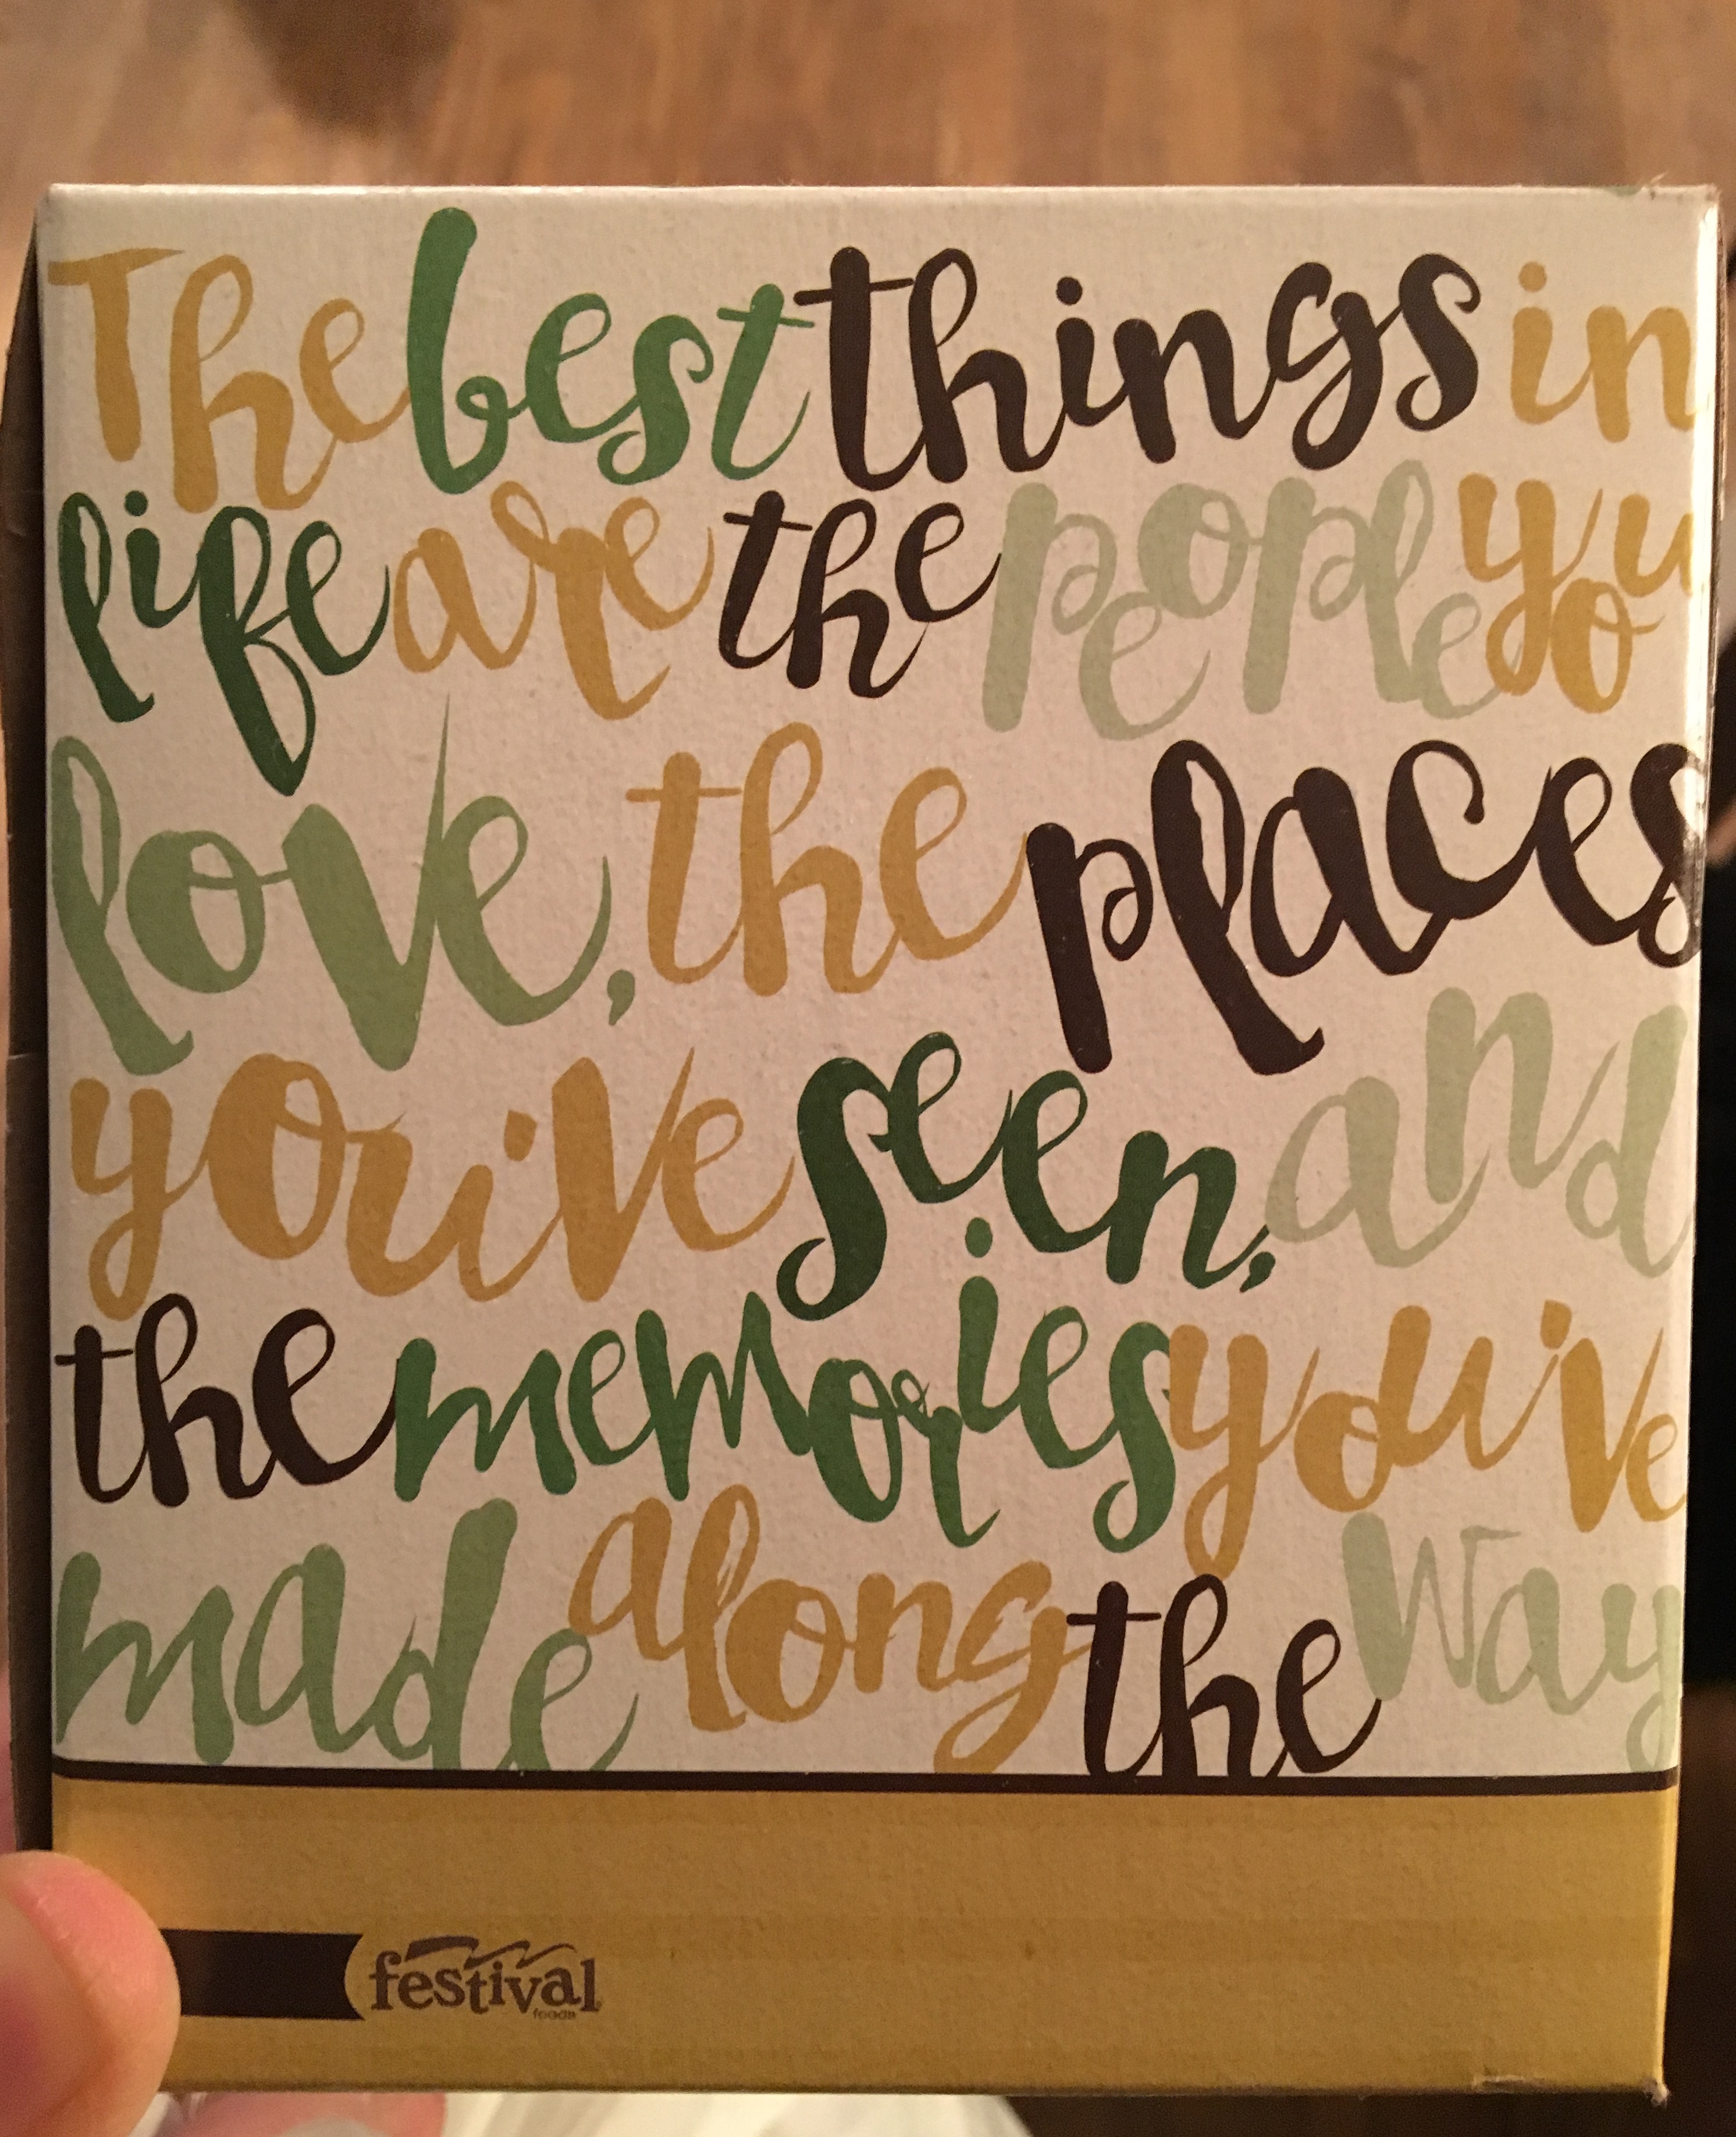 The best things in
life are the people you
love, the places
you've seen, and
the memories you've
made along the way
festival
foods